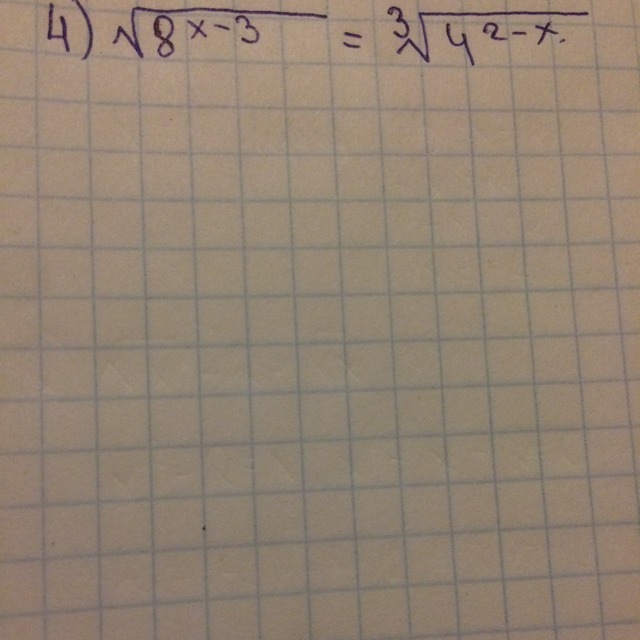 4) √8^{x-3} = ∛4^{2-x}.